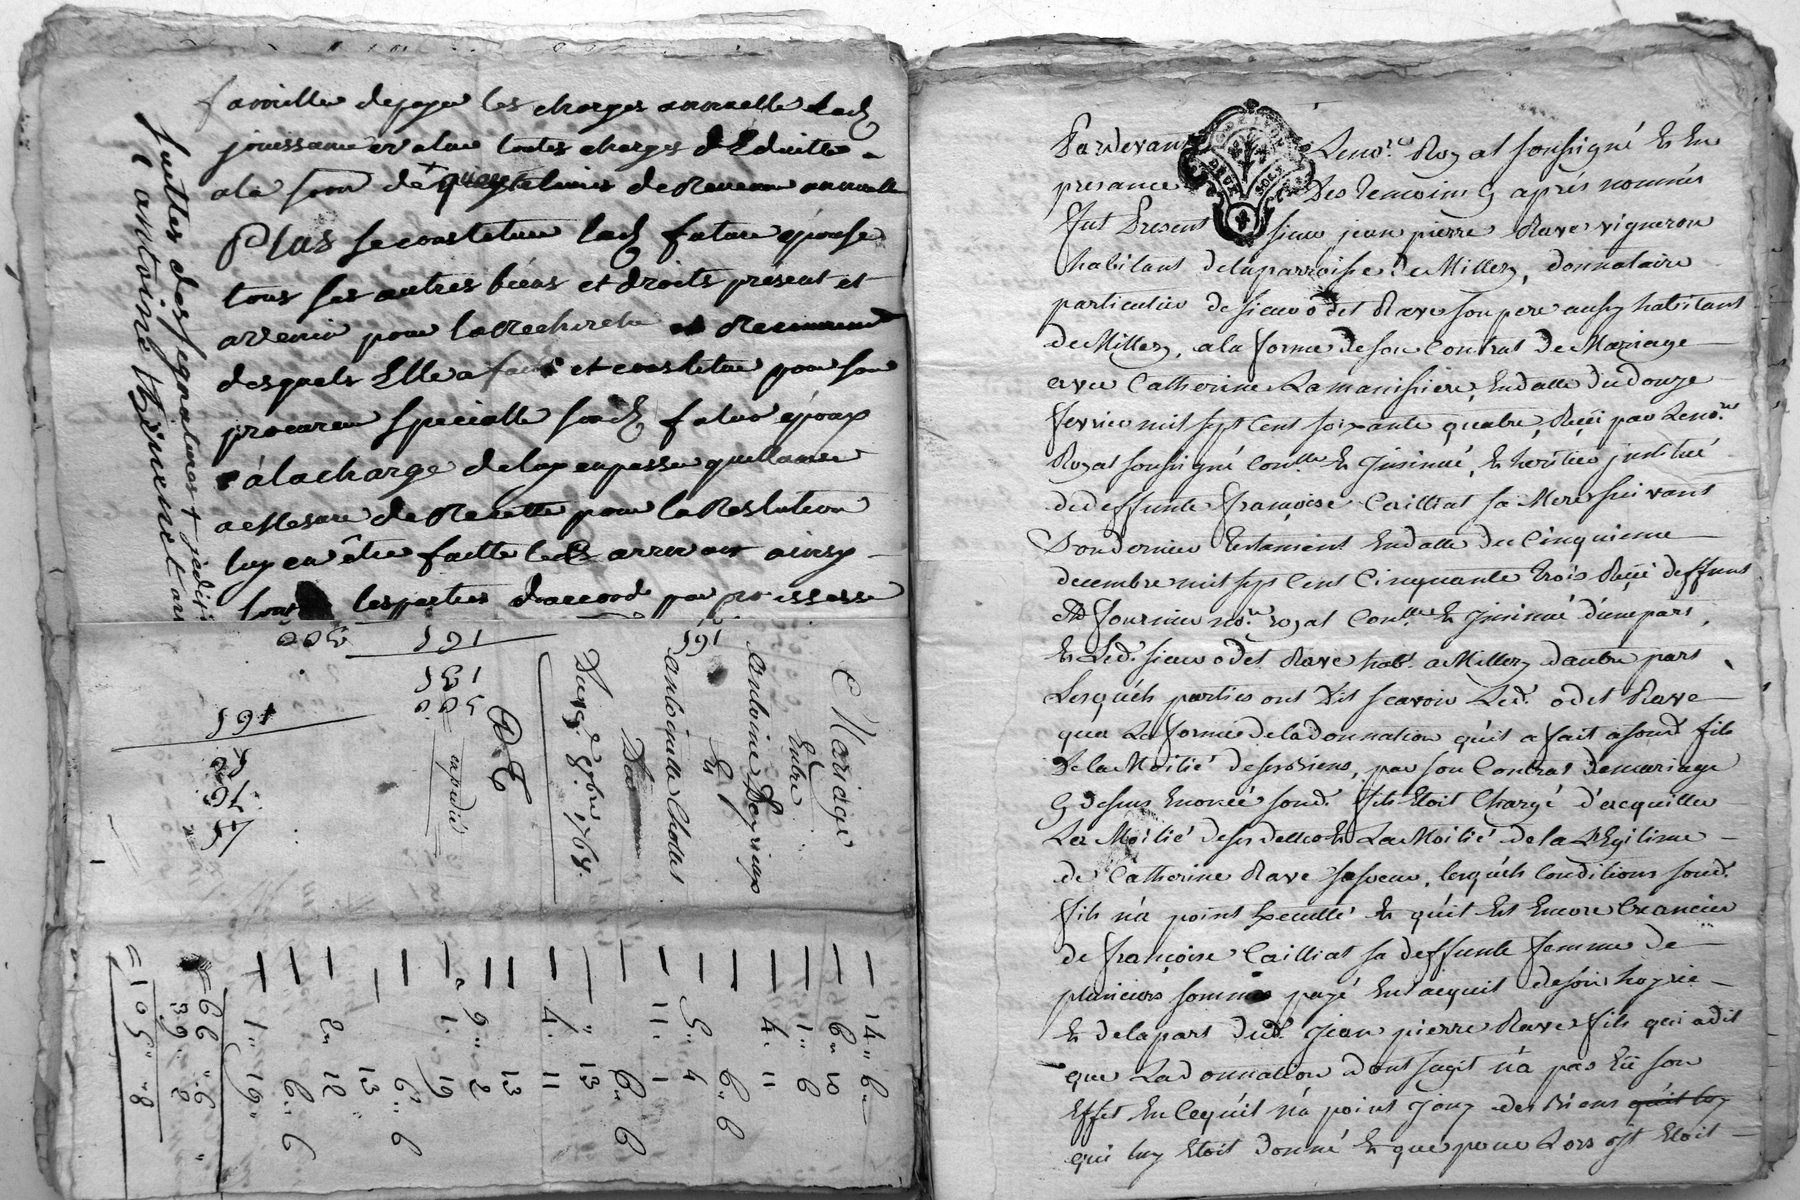 famille de payer les charges annuelle lad.
jouissance évalué toutes charges déduitte
a la som de quatre livres de Revenu annuelle
Plus se constitue lad. future épouse
tous ses autres biens et droits présent et
avenir pour la Recherche et Recouvrement
desquels Elle a fait et constitue pour son
procureur specialle sond. futur époux
à la charge de luy en passer quittance
a Mesure de Recette pour la Restitution
luy en être faitte le cas arrivant ainsy
les parties d'accord par
faittes des signatures
antoine
Mariage
Entre
antoine Deyrieux
Et
antoinette Chollet
Du
Du 7.e 8bre 1768.
expedié
300
161
131
500
161
161
14 6
6 10
1 6
4 11
6 6
5 4
11 1
6 6
13
4 11
13
9 2
1 19
6 6
13
2 12
6 6
1 19
66 6
39 2
=105 8
Pardevant Le no.re Royal soussigné Et En
presance Des temoins cy aprés nommés
Fut Present sieur jean pierre Rave vigneron
habitant de la parroisse de Millery, donnataire
particulier de sieur odet Rave son pere aussy habitant
de Millery, a la forme de son Contrat de Mariage
avec Catherine Lamanissiere, En datte du douze
fevrier mil sept Cent soixante quatre, Reçû par Le no.re
Royal soussigné Con.llé Et Insinué, Et heritier institué
de deffunte françoise Cailliat sa Mere suivant
Son dernier testament En datte du Cinquieme
decembre mil sept Cent Cinquante trois Reçû deffunt
M.e fournier no.re royal Con.llé Et Insinué d'une part,
Et Led. sieur odet Rave hab.t a Millery d'autre part
Lesquels parties ont Dit scavoir Led. odet Rave
que La forme de la donnation qu'il a fait a sond. fils
De la Moitié de ses Biens, par son Contrat de mariage
Cy dessus Enoncé sond. fils Etoit Chargé d'acquitter
La Moitié de ses dettes Et La Moitié de la Légitime
de Catherine Rave sa soeur, lesquels Conditions sond.
fils n'a point Executté Et qu'il Est Encore Creancier
de françoise Cailliat sa deffunte femme de
plusieurs sommes payé En l'acquit de son hoyrie
Et de la part dud. Jean pierre Rave fils qui a dit
que La donnation dont s'agit n'a pas Eü son
Effet En Cequ'il n'a point Jouy des Biens qu'il luy
qui luy Etoit donné Et que pour Lors il Etoit